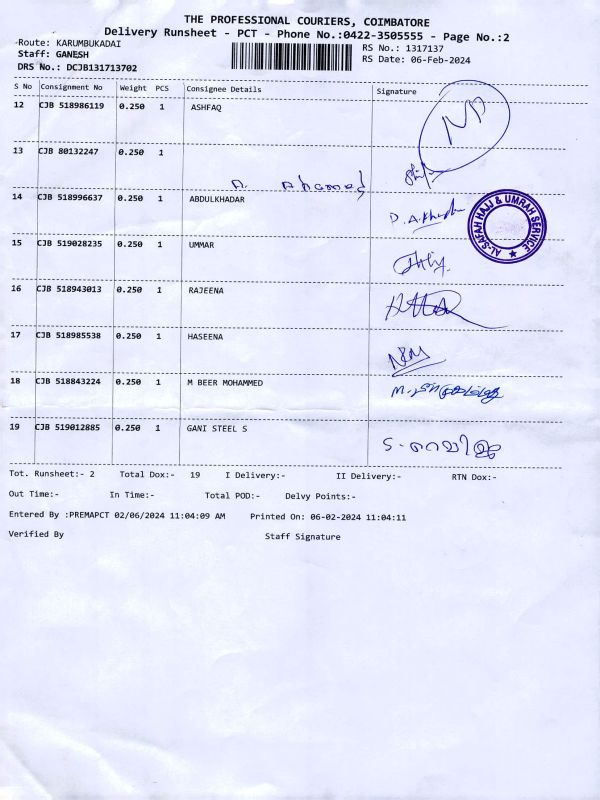 THE PROFESSIONAL COURIERS, COIMBATORE
Delivery Runsheet - PCT - Phone No.:0422-3505555 - Page No.:2
Route: KARUMBUKADAI RS No.: 1317137
Staff: GANESH RS Date: 06-Feb-2024
DRS No.: DCJB131713702
S No Consignment No Weight PCS Consignee Details Signature
12 CJB 518986119 0.250 1 ASHFAQ
13 CJB 80132247 0.250 1
A. Ahamed
14 CJB 518996637 0.250 1 ABDULKHADAR
AL-SAFAH HAJJ & UMRAH SERVICE
15 CJB 519028235 0.250 1 UMMAR
16 CJB 518943013 0.250 1 RAJEENA
17 CJB 518985538 0.250 1 HASEENA
18 CJB 518843224 0.250 1 M BEER MOHAMMED
19 CJB 519012885 0.250 1 GANI STEEL S
Tot. Runsheet:- 2 Total Dox:- 19 I Delivery:- II Delivery:- RTN Dox:-
Out Time:- In Time:- Total POD:- Delvy Points:-
Entered By :PREMAPCT 02/06/2024 11:04:09 AM Printed On: 06-02-2024 11:04:11
Verified By Staff Signature